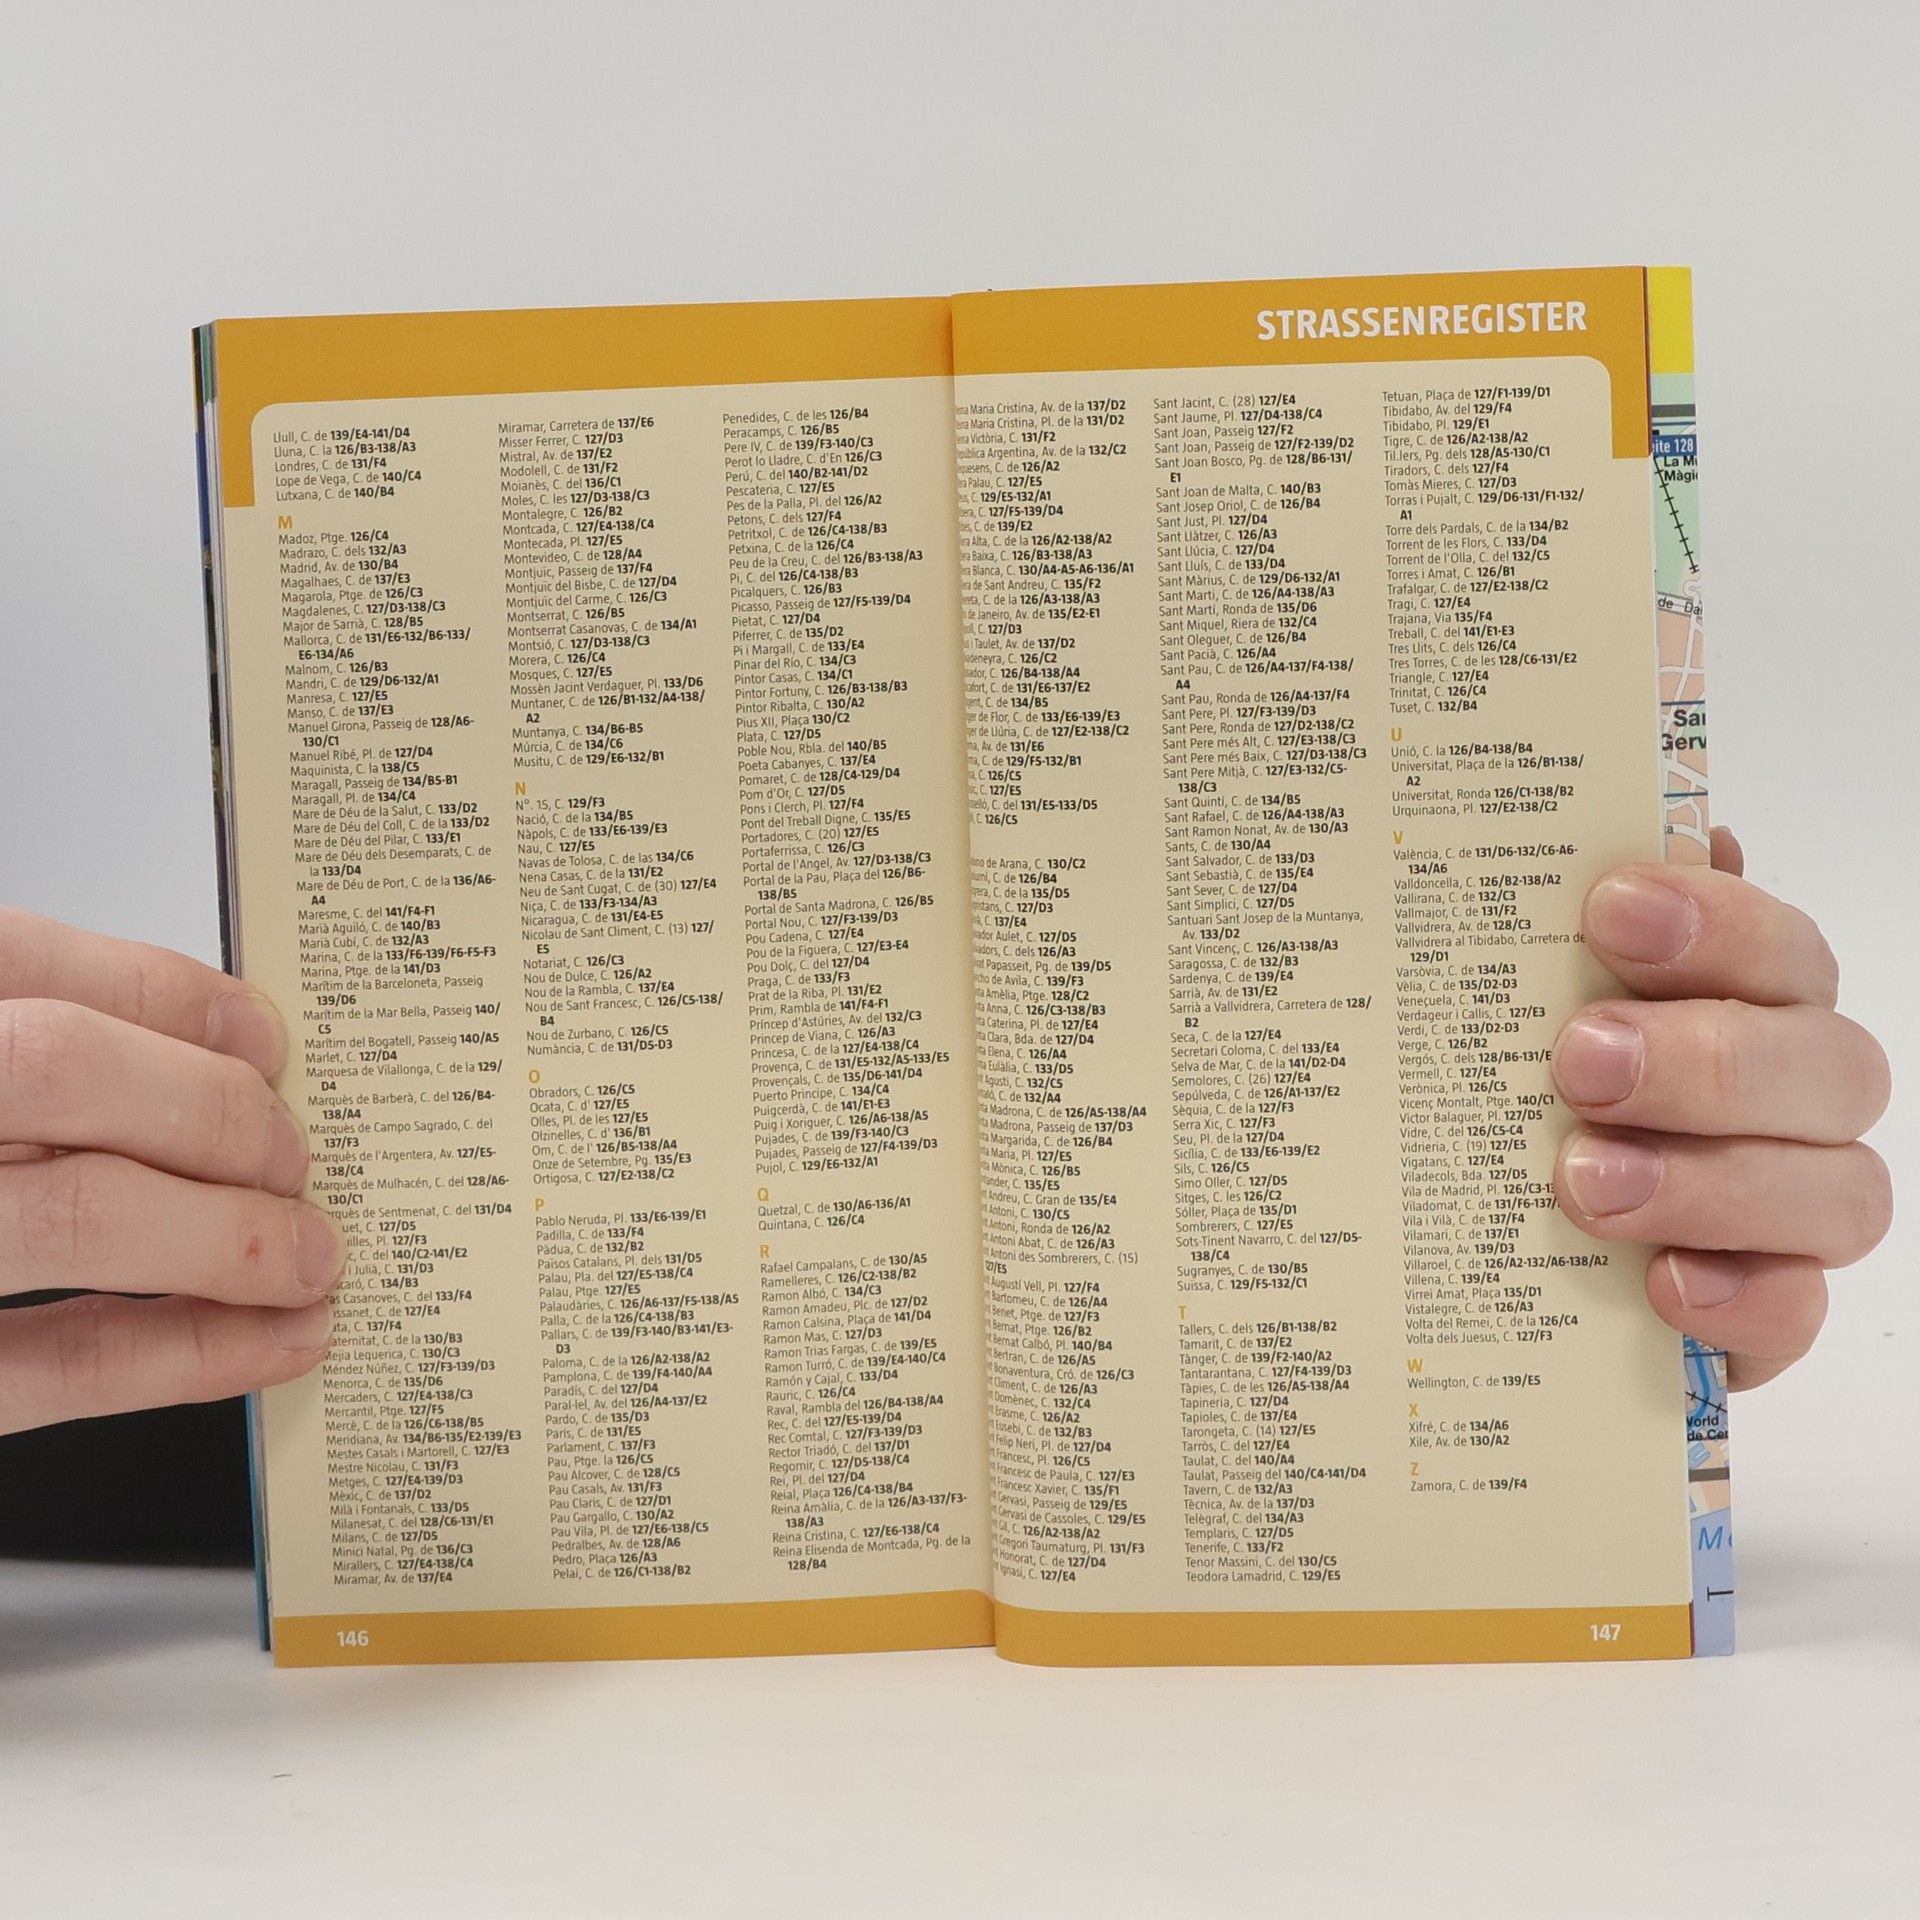 STRASSENREGISTER
Llull, C. de 139/E4-141/D4
Lluna, C. la 126/B3-138/A3
Londres, C. de 131/F4
Lope de Vega, C. de 140/C4
Lutxana, C. de 140/B4
M
Madoz, Ptge. 126/C4
Madrazo, C. dels 132/A3
Madrid, Av. de 130/B4
Magalhaes, C. de 137/E3
Magarola, Ptge. de 126/C3
Magdalenes, C. 127/D3-138/C3
Major de Sarrià, C. 128/B5
Mallorca, C. de 131/E6-132/B6-133/
E6-134/A6
Malnom, C. 126/B3
Mandri, C. de 129/D6-132/A1
Manresa, C. 127/E5
Manso, C. de 137/E3
Manuel Girona, Passeig de 128/A6-
130/C1
Manuel Ribé, Pl. de 127/D4
Maquinista, C. la 138/C5
Maragall, Passeig de 134/B5-B1
Maragall, Pl. de 134/C4
Mare de Déu de la Salut, C. 133/D2
Mare de Déu del Coll, C. de la 133/D2
Mare de Déu del Pilar, C. 133/E1
Mare de Déu dels Desemparats, C. de
la 133/D4
Mare de Déu de Port, C. de la 136/A6-
A4
Maresme, C. del 141/F4-F1
Marià Aguiló, C. de 140/B3
Marià Cubí, C. de 132/A3
Marina, C. de la 133/F6-139/F6-F5-F3
Marina, Ptge. de la 141/D3
Marítim de la Barceloneta, Passeig
139/D6
Marítim de la Mar Bella, Passeig 140/
C5
Marítim del Bogatell, Passeig 140/A5
Marlet, C. 127/D4
Marquesa de Vilallonga, C. de la 129/
D4
Marquès de Barberà, C. del 126/B4-
138/A4
Marquès de Campo Sagrado, C. del
137/F3
Marquès de l'Argentera, Av. 127/E5-
138/C4
Marquès de Mulhacén, C. del 128/A6-
130/C1
de Sentmenat, C. del 131/D4
C. 127/D5
Pl. 127/F3
C. del 140/C2-141/E2
i Julià, C. 131/D3
C. 134/B3
Casanoves, C. del 133/F4
C. de 127/E4
C. 137/F4
C. de la 130/B3
Mejía Lequerica, C. 130/C3
Méndez Núñez, C. 127/F3-139/D3
Menorca, C. de 135/D6
Mercaders, C. 127/E4-138/C3
Mercantil, Ptge. 127/F5
Mercè, C. de la 126/C6-138/B5
Meridiana, Av. 134/B6-135/E2-139/E3
Mestes Casals i Martorell, C. 127/E3
Mestre Nicolau, C. 131/F3
Metges, C. 127/E4-139/D3
Mèxic, C. de 137/D2
Milà i Fontanals, C. 133/D5
Milanesat, C. del 128/C6-131/E1
Milans, C. de 127/D5
Minici Natal, Pg. de 136/C3
Mirallers, C. 127/E4-138/C4
Miramar, Av. de 137/E4
Miramar, Carretera de 137/E6
Misser Ferrer, C. 127/D3
Mistral, Av. de 137/E2
Modolell, C. de 131/F2
Moianès, C. del 136/C1
Moles, C. les 127/D3-138/C3
Montalegre, C. 126/B2
Montcada, C. 127/E4-138/C4
Montecada, Pl. 127/E5
Montevideo, C. de 128/A4
Montjuïc, Passeig de 137/F4
Montjuïc del Bisbe, C. de 127/D4
Montjuïc del Carme, C. 126/C3
Montserrat, C. 126/B5
Montserrat Casanovas, C. de 134/A1
Montsió, C. 127/D3-138/C3
Morera, C. 126/C4
Mosques, C. 127/E5
Mossèn Jacint Verdaguer, Pl. 133/D6
Muntaner, C. de 126/B1-132/A4-138/
A2
Muntanya, C. 134/B6-B5
Múrcia, C. de 134/C6
Musitu, C. de 129/E6-132/B1
N
Nº. 15, C. 129/F3
Nació, C. de la 134/B5
Nàpols, C. de 133/E6-139/E3
Nau, C. 127/E5
Navas de Tolosa, C. de las 134/C6
Nena Casas, C. de la 131/E2
Neu de Sant Cugat, C. de (30) 127/E4
Niça, C. de 133/F3-134/A3
Nicaragua, C. de 131/E4-E5
Nicolau de Sant Climent, C. (13) 127/
E5
Notariat, C. 126/C3
Nou de Dulce, C. 126/A2
Nou de la Rambla, C. 137/E4
Nou de Sant Francesc, C. 126/C5-138/
B4
Nou de Zurbano, C. 126/C5
Numància, C. de 131/D5-D3
O
Obradors, C. 126/C5
Ocata, C. d' 127/E5
Olles, Pl. de les 127/E5
Olzinelles, C. d' 136/B1
Om, C. de l' 126/B5-138/A4
Onze de Setembre, Pg. 135/E3
Ortigosa, C. 127/E2-138/C2
P
Pablo Neruda, Pl. 133/E6-139/E1
Padilla, C. de 133/F4
Pàdua, C. de 132/B2
Països Catalans, Pl. dels 131/D5
Palau, Pla. del 127/E5-138/C4
Palau, Ptge. 127/E5
Palaudàries, C. 126/A6-137/F5-138/A5
Palla, C. de la 126/C4-138/B3
Pallars, C. de 139/F3-140/B3-141/E3-
D3
Paloma, C. de la 126/A2-138/A2
Pamplona, C. de 139/F4-140/A4
Paradís, C. del 127/D4
Paral·lel, Av. del 126/A4-137/E2
Pardo, C. de 135/D3
París, C. de 131/E5
Parlament, C. 137/F3
Pau, Ptge. la 126/C5
Pau Alcover, C. de 128/C5
Pau Casals, Av. 131/F3
Pau Claris, C. de 127/D1
Pau Gargallo, C. 130/A2
Pau Vila, Pl. de 127/E6-138/C5
Pedralbes, Av. de 128/A6
Pedro, Plaça 126/A3
Pelai, C. de 126/C1-138/B2
Penedides, C. de les 126/B4
Peracamps, C. 126/B5
Pere IV, C. de 139/F3-140/C3
Perot lo Lladre, C. d'En 126/C3
Perú, C. del 140/B2-141/D2
Pescateria, C. 127/E5
Pes de la Palla, Pl. del 126/A2
Petons, C. dels 127/F4
Petritxol, C. de 126/C4-138/B3
Petxina, C. de la 126/C4
Peu de la Creu, C. del 126/B3-138/A3
Pi, C. del 126/C4-138/B3
Picalquers, C. 126/B3
Picasso, Passeig de 127/F5-139/D4
Pietat, C. 127/D4
Piferrer, C. de 135/D2
Pi i Margall, C. de 133/E4
Pinar del Río, C. 134/C3
Pintor Casas, C. 134/C1
Pintor Fortuny, C. 126/B3-138/B3
Pintor Ribalta, C. 130/A2
Pius XII, Plaça 130/C2
Plata, C. 127/D5
Poble Nou, Rbla. del 140/B5
Poeta Cabanyes, C. 137/E4
Pomaret, C. de 128/C4-129/D4
Pom d'Or, C. 127/D5
Pons i Clerch, Pl. 127/F4
Pont del Treball Digne, C. 135/E5
Portadores, C. (20) 127/E5
Portaferrissa, C. 126/C3
Portal de l'Angel, Av. 127/D3-138/C3
Portal de la Pau, Plaça del 126/B6-
138/B5
Portal de Santa Madrona, C. 126/B5
Portal Nou, C. 127/F3-139/D3
Pou Cadena, C. 127/E4
Pou de la Figuera, C. 127/E3-E4
Pou Dolç, C. del 127/D4
Praga, C. de 133/F3
Prat de la Riba, Pl. 131/E2
Prim, Rambla de 141/F4-F1
Príncep d'Astúries, Av. del 132/C3
Príncep de Viana, C. 126/A3
Princesa, C. de la 127/E4-138/C4
Provença, C. 131/E5-132/A5-133/E5
Provençals, C. de 135/D6-141/D4
Puerto Principe, C. 134/C4
Puigcerdà, C. de 141/E1-E3
Puig i Xoriguer, C. 126/A6-138/A5
Pujades, C. de 139/F3-140/C3
Pujades, Passeig de 127/F4-139/D3
Pujol, C. 129/E6-132/A1
Q
Quetzal, C. de 130/A6-136/A1
Quintana, C. 126/C4
R
Rafael Campalans, C. de 130/A5
Ramelleres, C. 126/C2-138/B2
Ramon Albó, C. 134/C3
Ramon Amadeu, Plc. de 127/D2
Ramon Calsina, Plaça de 141/D4
Ramon Mas, C. 127/D3
Ramon Trias Fargas, C. de 139/E5
Ramon Turró, C. de 139/E4-140/C4
Ramón y Cajal, C. 133/D4
Rauric, C. 126/C4
Raval, Rambla del 126/B4-138/A4
Rec, C. del 127/E5-139/D4
Rec Comtal, C. 127/F3-139/D3
Rector Triadó, C. del 137/D1
Regomir, C. 127/D5-138/C4
Rei, Pl. del 127/D4
Reial, Plaça 126/C4-138/B4
Reina Amàlia, C. de la 126/A3-137/F3-
138/A3
Reina Cristina, C. 127/E6-138/C4
Reina Elisenda de Montcada, Pg. de la
128/B4
146
Maria Cristina, Av. de la 137/D2
Maria Cristina, Pl. de la 131/D2
Victòria, C. 131/F2
Argentina, Av. de la 132/C2
C. de 126/A2
Palau, C. 127/E5
C. 129/E5-132/A1
C. 127/F5-139/D4
C. de 139/E2
Alta, C. de la 126/A2-138/A2
Baixa, C. 126/B3-138/A3
Blanca, C. 130/A4-A5-A6-136/A1
de Sant Andreu, C. 135/F2
C. de la 126/A3-138/A3
de Janeiro, Av. de 135/E2-E1
C. 127/D3
i Taulet, Av. de 137/D2
C. 126/C2
C. 126/B4-138/A4
C. de 131/E6-137/E2
C. de 134/B5
de Flor, C. de 133/E6-139/E3
de Llúria, C. de 127/E2-138/C2
Av. de 131/E6
C. de 129/F5-132/B1
C. 126/C5
C. 127/E5
C. del 131/E5-133/D5
C. 126/C5
de Arana, C. 130/C2
C. de 126/B4
C. de la 135/D5
C. de 127/D3
C. 137/E4
Aulet, C. 127/D5
C. dels 126/A3
Papasseit, Pg. de 139/D5
de Avila, C. 139/F3
Amèlia, Ptge. 128/C2
Anna, C. 126/C3-138/B3
Caterina, Pl. de 127/E4
Clara, Bda. de 127/D4
Elena, C. 126/A4
Eulàlia, C. 133/D5
Agustí, C. 132/C5
C. de 132/A4
Madrona, C. de 126/A5-138/A4
Madrona, Passeig de 137/D3
Margarida, C. de 126/B4
Maria, Pl. 127/E5
Mònica, C. 126/B5
C. 135/E5
Andreu, C. Gran de 135/E4
Antoni, C. 130/C5
Antoni, Ronda de 126/A2
Antoni Abat, C. de 126/A3
Antoni des Sombrerers, C. (15)
127/E5
Augustí Vell, Pl. 127/F4
Bartomeu, C. de 126/A4
Benet, Ptge. de 127/F3
Bernat, Ptge. 126/B2
Bernat Calbó, Pl. 140/B4
Bertran, C. de 126/A5
Bonaventura, Cró. de 126/C3
Climent, C. de 126/A3
Domènec, C. 132/C4
Erasme, C. 126/A2
Eusebi, C. de 132/B3
Felip Neri, Pl. de 127/D4
Francesc, Pl. 126/C5
Francesc de Paula, C. 127/E3
Francesc Xavier, C. 135/F1
Gervasi, Passeig de 129/E5
Gervasi de Cassoles, C. 129/E5
Gil, C. 126/A2-138/A2
Gregori Taumaturg, Pl. 131/F3
Honorat, C. de 127/D4
Ignasi, C. 127/E4
Sant Jacint, C. (28) 127/E4
Sant Jaume, Pl. 127/D4-138/C4
Sant Joan, Passeig 127/F2
Sant Joan, Passeig de 127/F2-139/D2
Sant Joan Bosco, Pg. de 128/B6-131/
E1
Sant Joan de Malta, C. 140/B3
Sant Josep Oriol, C. de 126/B4
Sant Just, Pl. 127/D4
Sant Llàtzer, C. 126/A3
Sant Llúcia, C. 127/D4
Sant Lluís, C. de 133/D4
Sant Màrius, C. de 129/D6-132/A1
Sant Marti, C. de 126/A4-138/A3
Sant Martí, Ronda de 135/D6
Sant Miquel, Riera de 132/C4
Sant Oleguer, C. de 126/B4
Sant Pacià, C. 126/A4
Sant Pau, C. de 126/A4-137/F4-138/
A4
Sant Pau, Ronda de 126/A4-137/F4
Sant Pere, Pl. 127/F3-139/D3
Sant Pere, Ronda de 127/D2-138/C2
Sant Pere més Alt, C. 127/E3-138/C3
Sant Pere més Baix, C. 127/D3-138/C3
Sant Pere Mitjà, C. 127/E3-132/C5-
138/C3
Sant Quintí, C. de 134/B5
Sant Rafael, C. de 126/A4-138/A3
Sant Ramon Nonat, Av. de 130/A3
Sants, C. de 130/A4
Sant Salvador, C. de 133/D3
Sant Sebastià, C. de 135/E4
Sant Sever, C. de 127/D4
Sant Simplici, C. 127/D5
Santuari Sant Josep de la Muntanya,
Av. 133/D2
Sant Vincenç, C. 126/A3-138/A3
Saragossa, C. de 132/B3
Sardenya, C. de 139/E4
Sarrià, Av. de 131/E2
Sarrià a Vallvidrera, Carretera de 128/
B2
Seca, C. de la 127/E4
Secretari Coloma, C. del 133/E4
Selva de Mar, C. de la 141/D2-D4
Semolores, C. (26) 127/E4
Sepúlveda, C. de 126/A1-137/E2
Sèquia, C. de la 127/F3
Serra Xic, C. 127/F3
Seu, Pl. de la 127/D4
Sicília, C. de 133/E6-139/E2
Sils, C. 126/C5
Simo Oller, C. 127/D5
Sitges, C. les 126/C2
Sóller, Plaça de 135/D1
Sombrerers, C. 127/E5
Sots-Tinent Navarro, C. del 127/D5-
138/C4
Sugranyes, C. de 130/B5
Suïssa, C. 129/F5-132/C1
T
Tallers, C. dels 126/B1-138/B2
Tamarit, C. de 137/E2
Tànger, C. de 139/F2-140/A2
Tantarantana, C. 127/F4-139/D3
Tàpies, C. de les 126/A5-138/A4
Tapineria, C. 127/D4
Tapioles, C. de 137/E4
Tarongeta, C. (14) 127/E5
Tarròs, C. del 127/E4
Taulat, C. del 140/A4
Taulat, Passeig del 140/C4-141/D4
Tavern, C. de 132/A3
Tècnica, Av. de la 137/D3
Telègraf, C. del 134/A3
Templaris, C. 127/D5
Tenerife, C. 133/F2
Tenor Massini, C. del 130/C5
Teodora Lamadrid, C. 129/E5
Tetuan, Plaça de 127/F1-139/D1
Tibidabo, Av. del 129/F4
Tibidabo, Pl. 129/E1
Tigre, C. de 126/A2-138/A2
Til.lers, Pg. dels 128/A5-130/C1
Tiradors, C. dels 127/F4
Tomàs Mieres, C. 127/D3
Torras i Pujalt, C. 129/D6-131/F1-132/
A1
Torre dels Pardals, C. de la 134/B2
Torrent de les Flors, C. 133/D4
Torrent de l'Olla, C. del 132/C5
Torres i Amat, C. 126/B1
Trafalgar, C. de 127/E2-138/C2
Tragi, C. 127/E4
Trajana, Via 135/F4
Treball, C. del 141/E1-E3
Tres Llits, C. dels 126/C4
Tres Torres, C. de les 128/C6-131/E2
Triangle, C. 127/E4
Trinitat, C. 126/C4
Tuset, C. 132/B4
U
Unió, C. la 126/B4-138/B4
Universitat, Plaça de la 126/B1-138/
A2
Universitat, Ronda 126/C1-138/B2
Urquinaona, Pl. 127/E2-138/C2
V
València, C. de 131/D6-132/C6-A6-
134/A6
Valldoncella, C. 126/B2-138/A2
Vallirana, C. de 132/C3
Vallmajor, C. de 131/F2
Vallvidrera, Av. de 128/C3
Vallvidrera al Tibidabo, Carretera de
129/D1
Varsòvia, C. de 134/A3
Vèlia, C. de 135/D2-D3
Veneçuela, C. 141/D3
Verdageur i Callis, C. 127/E3
Verdi, C. de 133/D2-D3
Verge, C. 126/B2
Vergós, C. dels 128/B6-131/E
Vermell, C. 127/E4
Verònica, Pl. 126/C5
Vicenç Montalt, Ptge. 140/C1
Victor Balaguer, Pl. 127/D5
Vidre, C. del 126/C5-C4
Vidrieria, C. (19) 127/E5
Vigatans, C. 127/E4
Viladecols, Bda. 127/D5
Vila de Madrid, Pl. 126/C3-13
Viladomat, C. de 131/F6-137/
Vila i Vilà, C. de 137/F4
Vilamarí, C. de 137/E1
Vilanova, Av. 139/D3
Villaroel, C. de 126/A2-132/A6-138/A2
Villena, C. 139/E4
Virrei Amat, Plaça 135/D1
Vistalegre, C. de 126/A3
Volta del Remei, C. de la 126/C4
Volta dels Juesus, C. 127/F3
W
Wellington, C. de 139/E5
X
Xifré, C. de 134/A6
Xile, Av. de 130/A2
Z
Zamora, C. de 139/F4
147
128
La
Màgi
de
World
de